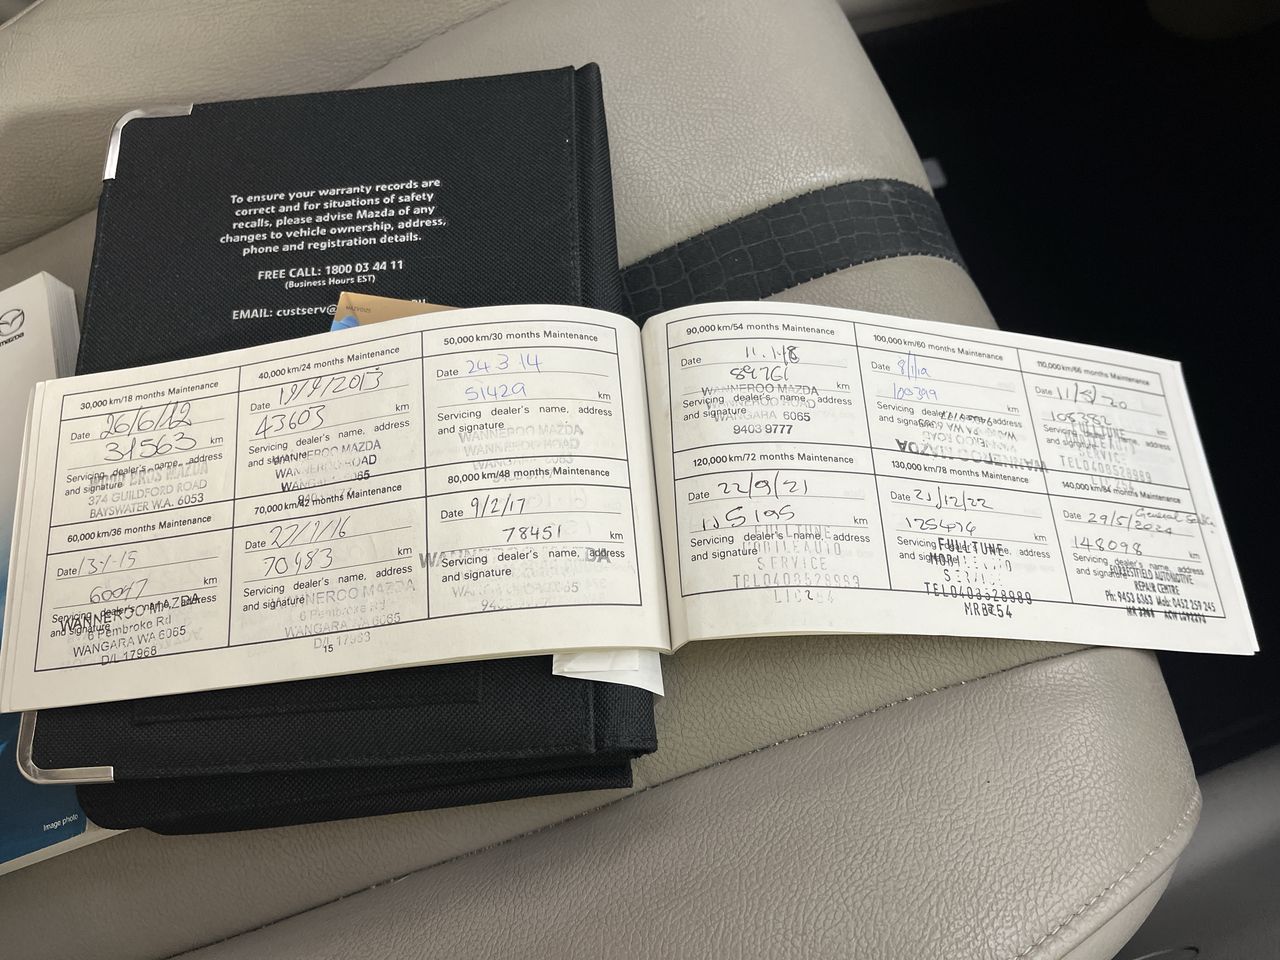 To ensure your warranty records are
correct and for situations of safety
recalls, please advise Mazda of any
changes to vehicle ownership, address,
phone and registration details.
FREE CALL: 1800 03 44 11
(Business Hours EST)
EMAIL: custserv@
mazda
Image photo
30,000 km/18 months Maintenance
Date 26/6/12
31563 km
Servicing dealer's name, address
and signature
374 GUILDFORD ROAD
BAYSWATER W.A. 6053
40,000 km/24 months Maintenance
Date 19/9/2013
43603 km
Servicing dealer's name, address
and signature
WANNEROO MAZDA
WANNEROO ROAD
50,000 km/30 months Maintenance
Date 24 3 14
51429 km
Servicing dealer's name, address
and signature
WANNEROO MAZDA
WANNEROO ROAD
60,000 km/36 months Maintenance
Date
60047 km
Servicing dealer's name, address
and signature
WANNEROO MAZDA
6 Pembroke Rd
WANGARA WA 6065
D/L 17968
70,000 km/42 months Maintenance
Date 27/7/16
70983 km
Servicing dealer's name, address
and signature
WANNEROO MAZDA
6 Pembroke Rd
WANGARA WA 6065
80,000 km/48 months Maintenance
Date 9/2/17
78451 km
Servicing dealer's name, address
and signature
15
90,000 km/54 months Maintenance
Date
km
Servicing dealer's name, address
and signature
WANNEROO MAZDA
WANNEROO ROAD
WANGARA 6065
9403 9777
100,000 km/60 months Maintenance
Date
100399 km
Servicing dealer's name, address
and signature
WANNEROO MAZDA
110,000 km/66 months Maintenance
Date
km
Servicing dealer's name, address
and signature
SERVICE
TEL0403528989
120,000 km/72 months Maintenance
Date 22/9/21
115195 km
Servicing dealer's name, address
and signature
FULLTUNE
MOBILE AUTO
SERVICE
TEL0403528989
130,000 km/78 months Maintenance
Date 21/12/22
125476 km
Servicing dealer's name, address
and signature
FULLTUNE
TEL0403528989
140,000 km/84 months Maintenance
General Service
Date 29/5/2024
148098 km
Servicing dealer's name, address
and signature
FORRESTFIELD AUTOMOTIVE
REPAIR CENTRE
Ph: 9453 6363 Mob: 0452 259 245